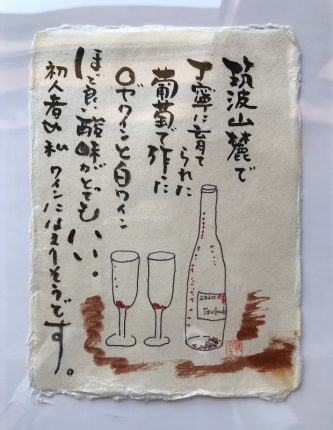 筑波山麓で
丁寧に育て
られた
葡萄で作た
ロゼワインと白ワイン
ほど良い酸味がとってもいい。
初心者の私 ワインにはまりそうです。
2020
Tsukuba